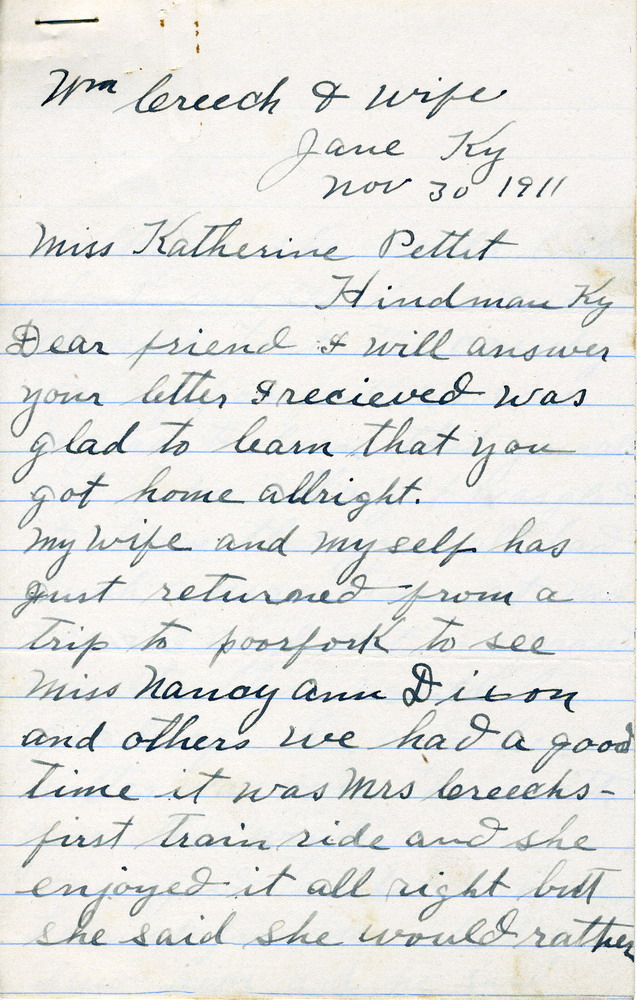 Wm Creech & wife
Jane Ky
Nov 30 1911
Miss Katherine Pettit
Hindman Ky
Dear friend I will answer
your letter I recieved was
glad to learn that you
got home allright.
My wife and myself has
just returned from a
trip to poorfork to see
Miss Nancy ann Dixon
and others we had a good
time it was Mrs Creechs-
first train ride and she
enjoyed it all right butt
she said she would rather